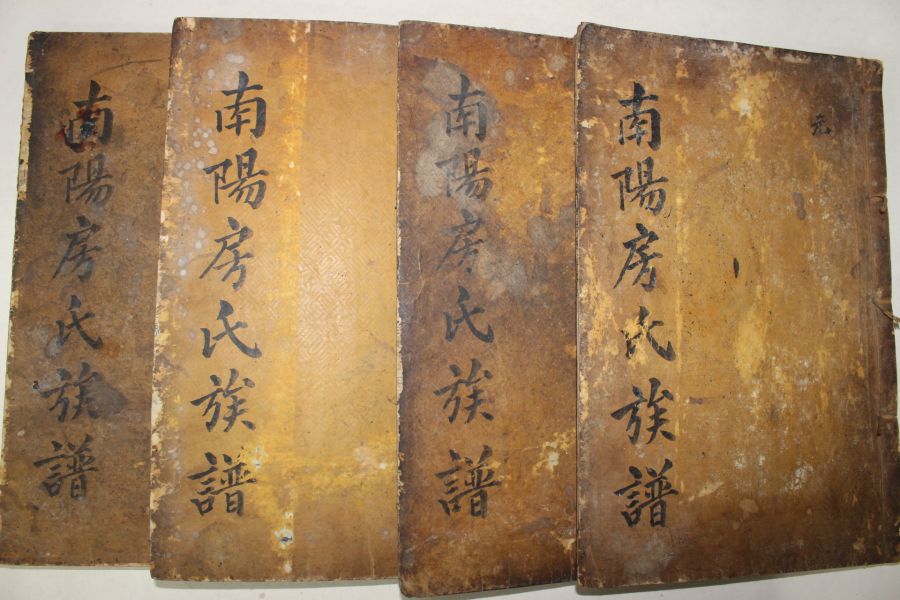 南陽房氏族譜
元
南陽房氏族譜
南陽房氏族譜
南陽房氏族譜